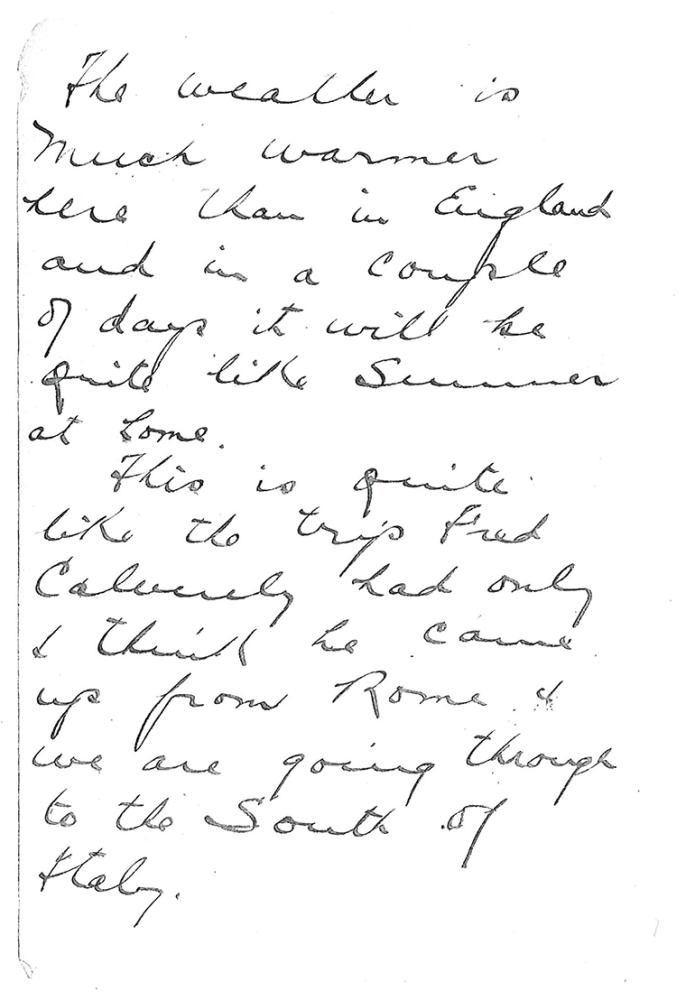 The weather is
Much warmer
here than in England
and in a couple
of days it will be
quite like Summer
at home.
This is quite
like the trip Fred
Calverely had only
I think he came
up from Rome &
we are going through
to the South of
Italy.